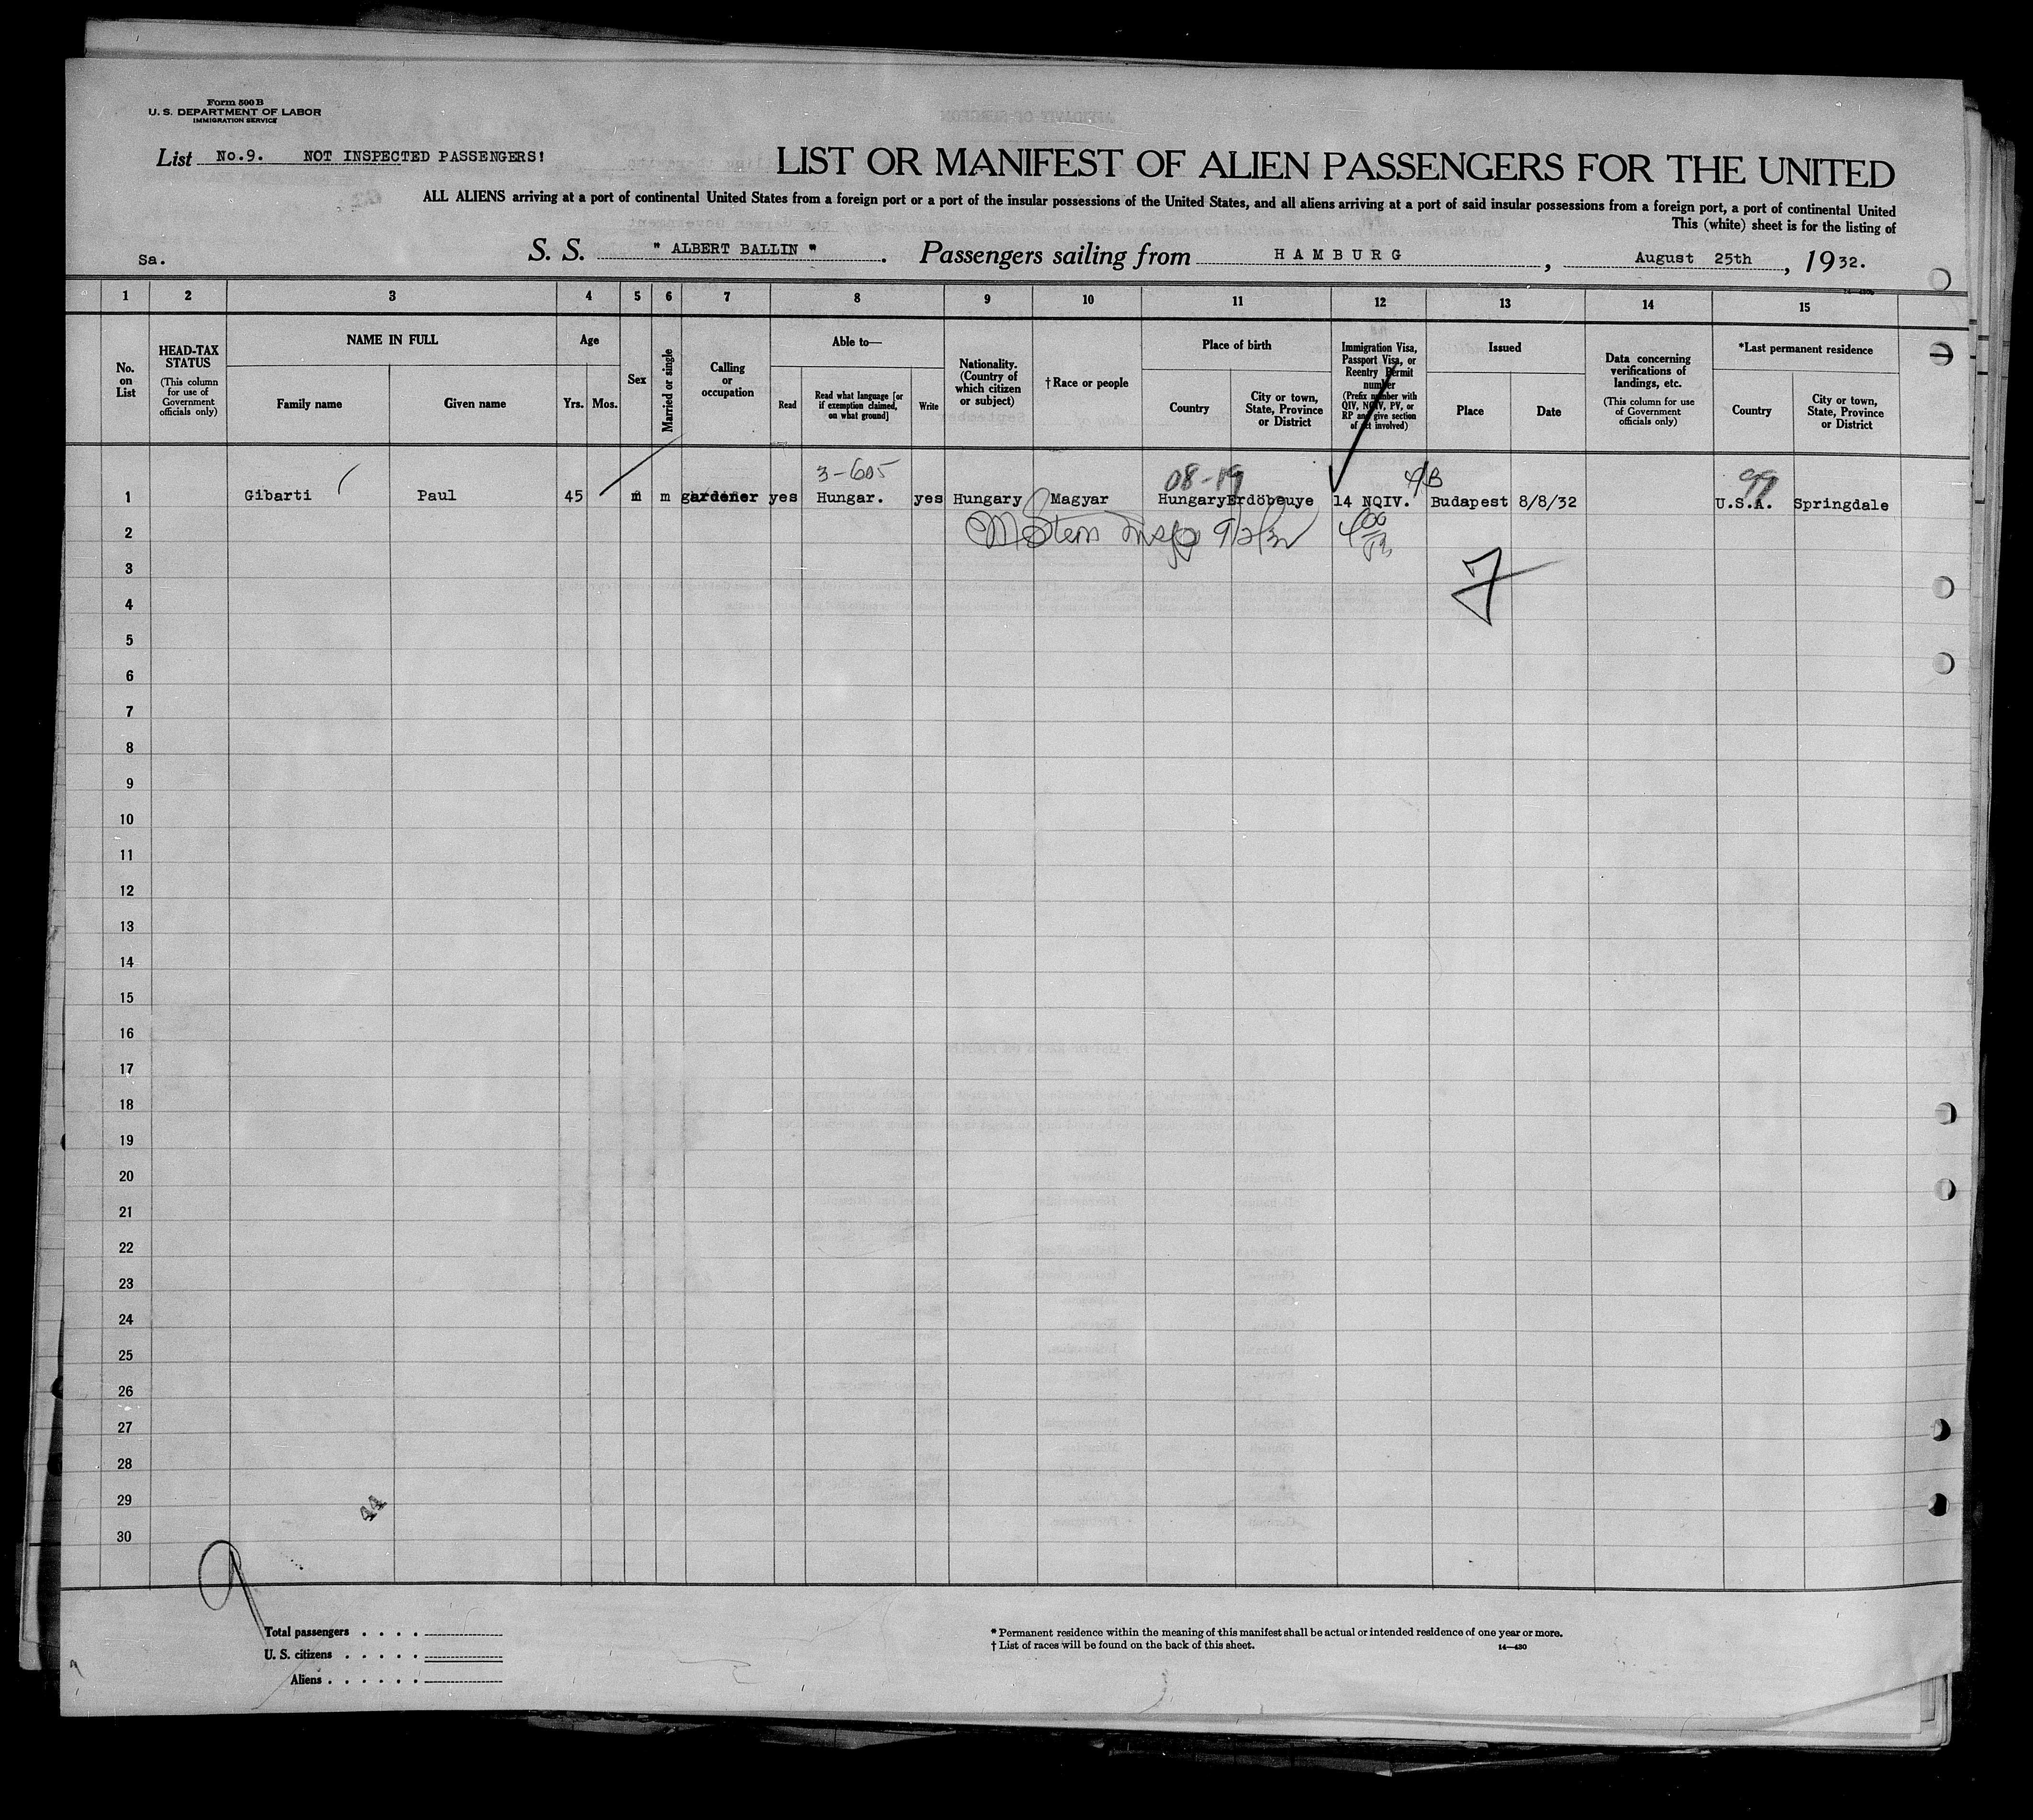 Form 500 B
U. S. DEPARTMENT OF LABOR
IMMIGRATION SERVICE
List No.9. NOT INSPECTED PASSENGERS!
LIST OR MANIFEST OF ALIEN PASSENGERS FOR THE UNITED
ALL ALIENS arriving at a port of continental United States from a foreign port or a port of the insular possessions of the United States, and all aliens arriving at a port of said insular possessions from a foreign port, a port of continental United
This (white) sheet is for the listing of
Sa. S. S. " ALBERT BALLIN " . Passengers sailing from HAMBURG , August 25th , 1932.
1 2 3 4 5 6 7 8 9 10 11 12 13 14 15
No. on List
HEAD-TAX STATUS
(This column for use of Government officials only)
NAME IN FULL
Family name
Given name
Age
Yrs. Mos.
Sex
Married or single
Calling or occupation
Able to—
Read
Read what language [or if exemption claimed, on what ground]
Write
Nationality. (Country of which citizen or subject)
† Race or people
Place of birth
Country
City or town, State, Province or District
Immigration Visa, Passport Visa, or Reentry Permit number
(Prefix number with QIV, NQIV, PV, or RP and give section of act involved)
Issued
Place
Date
Data concerning verifications of landings, etc.
(This column for use of Government officials only)
*Last permanent residence
Country
City or town, State, Province or District
3-605 08-19 4/B 99
1 Gibarti Paul 45 m m gardener yes Hungar. yes Hungary Magyar Hungary Erdöbeuye 14 NQIV. Budapest 8/8/32 U.S.A. Springdale
2 Stern Insp 9/2/32
3
7
4
5
6
7
8
9
10
11
12
13
14
15
16
17
18
19
20
21
22
23
24
25
26
27
28
29
44
30
9
Total passengers . . . .
U. S. citizens . . . . .
Aliens . . . . . .
* Permanent residence within the meaning of this manifest shall be actual or intended residence of one year or more.
† List of races will be found on the back of this sheet. 14—430